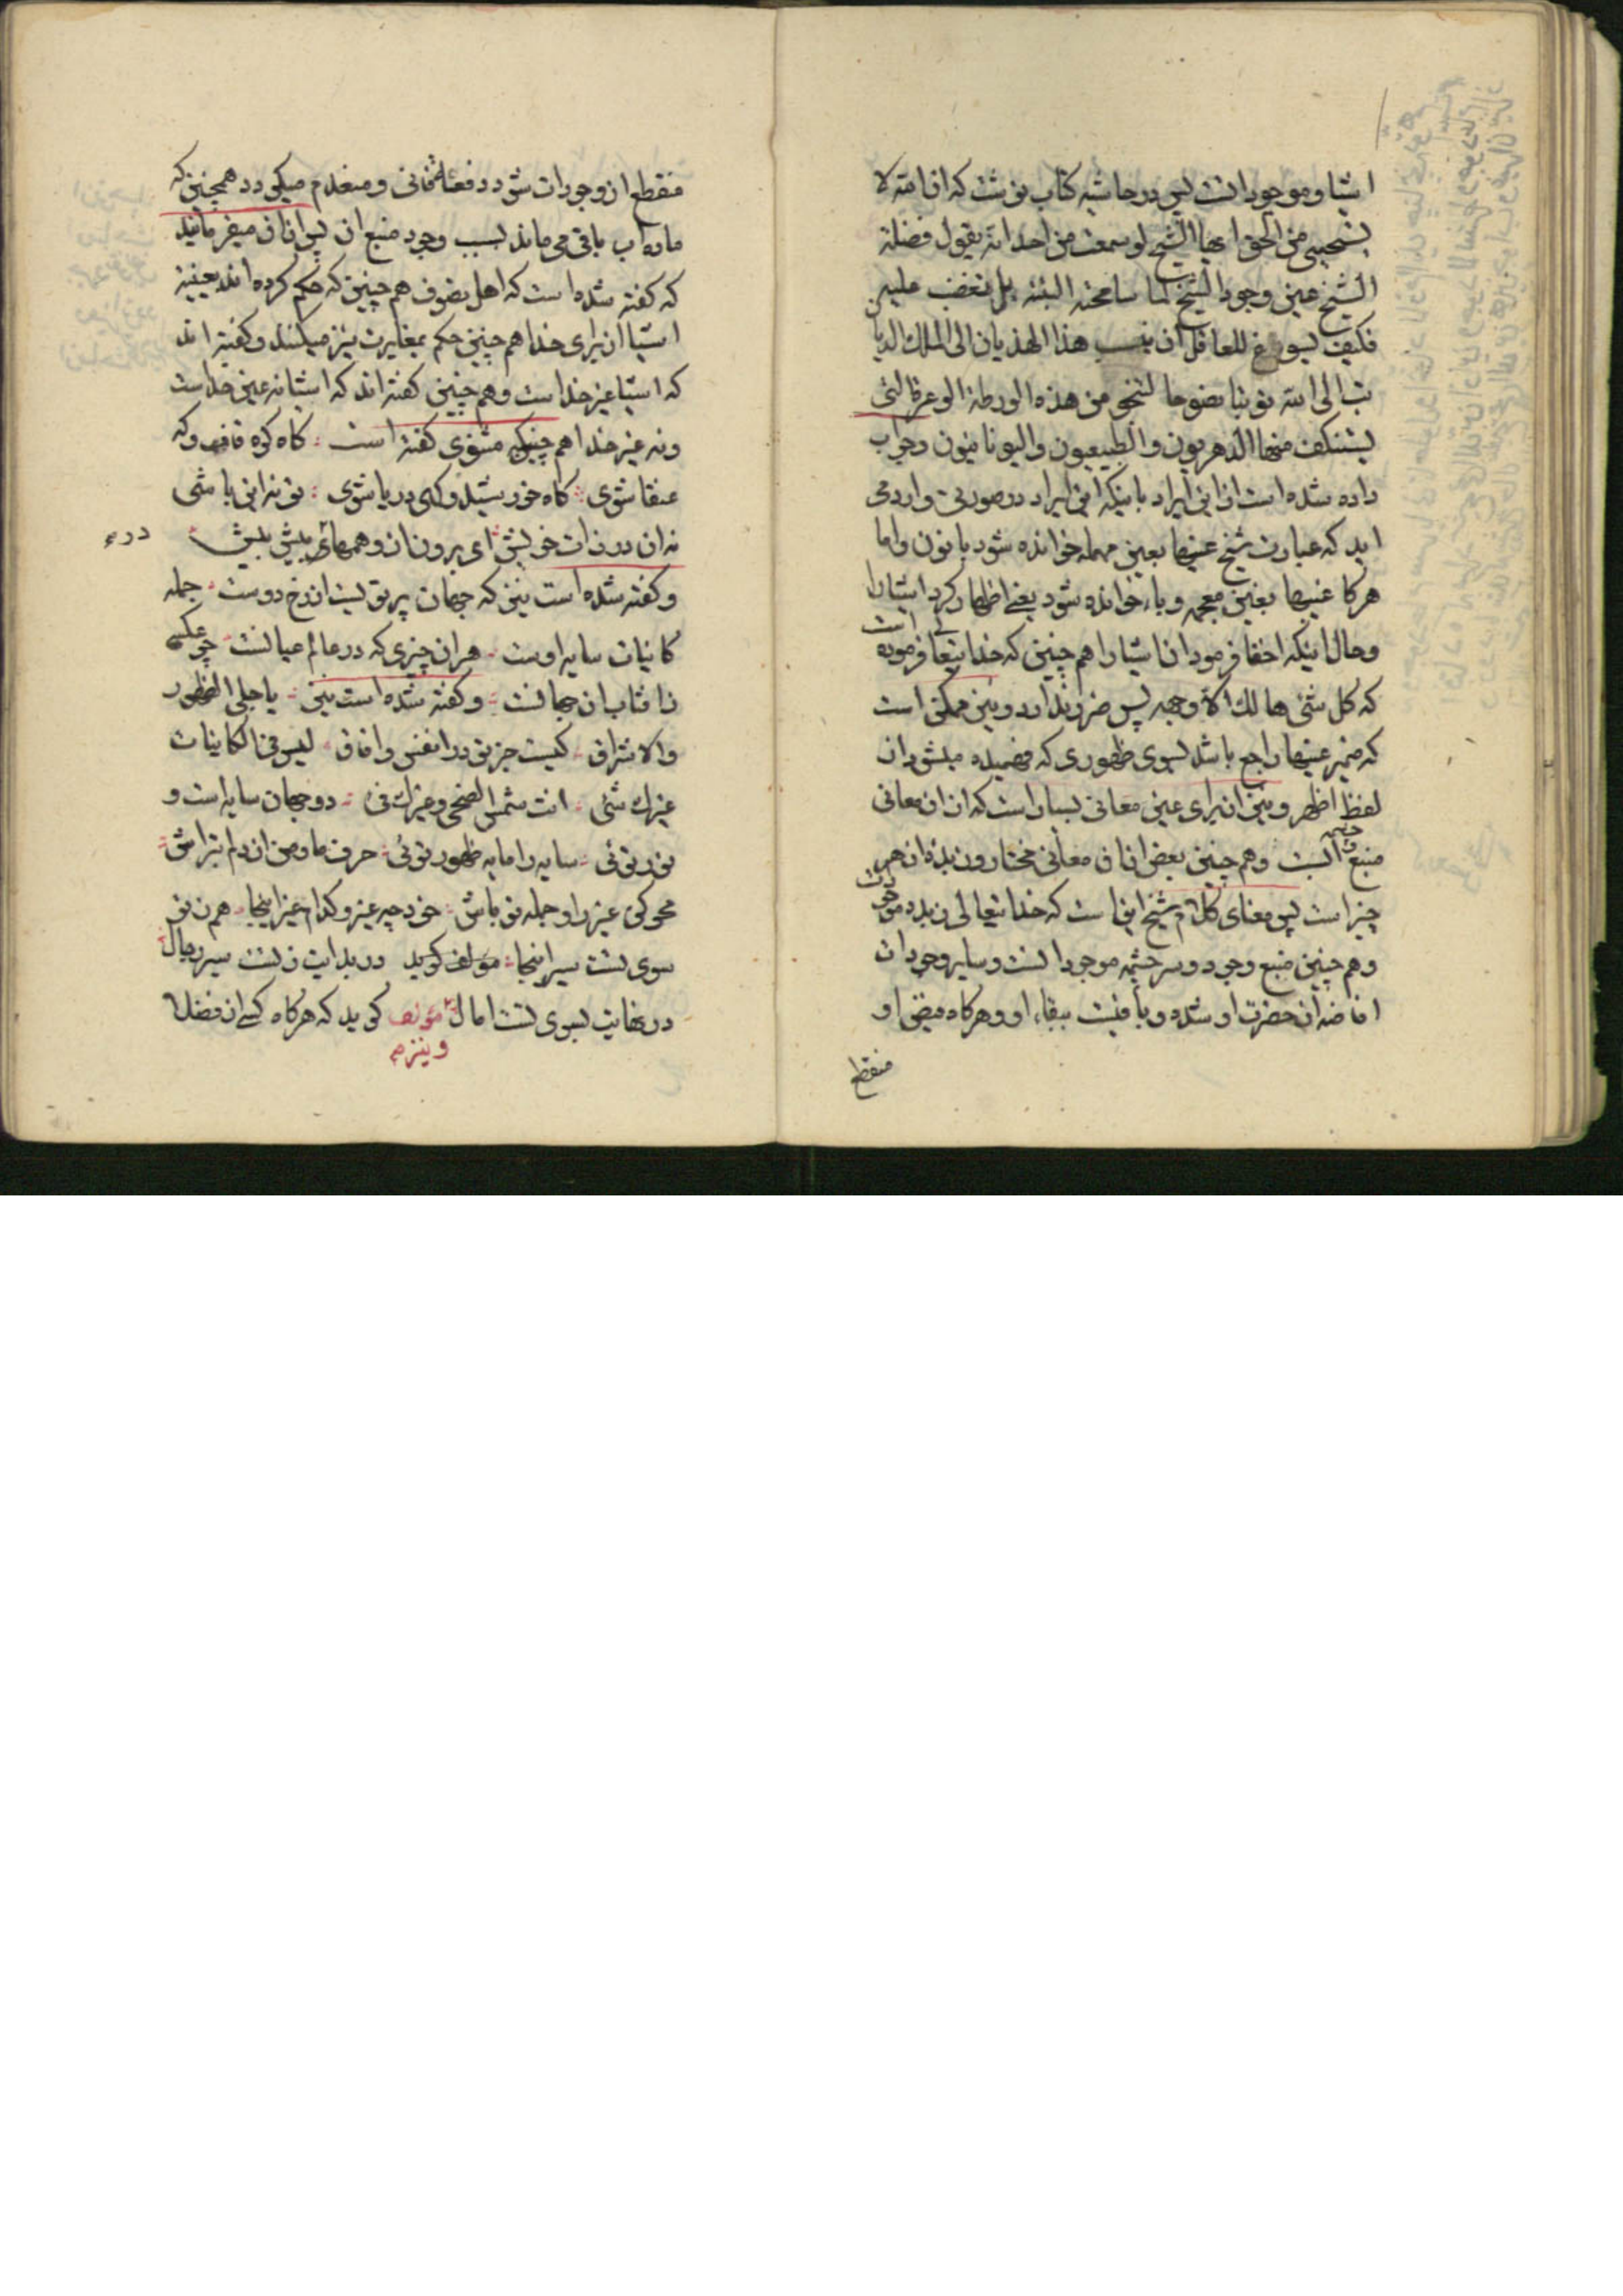 اشیا و موجودانست پس در حاشیه کتاب نوشت که ان الله لا
یستحیی من الحق ایها الشیخ لو سمعت من احد انه یقول فضلة
الشیخ عین وجود الشیخ لما سامحته البتة بل تغضب علیه
فکیف یسوغ للعاقل ان ینسب هذا الهذیان الی الملک الدیان
تب الی الله توبة نصوحا لتنجو من هذه الورطة الوعرة التی
یستنکف منها الدهریون والطبیعیون والیونانیون وجواب
داده شده است از این ایراد باینکه این ایراد در صورتی وارد می
اید که عبارت شیخ عینها بعین مهمله خوانده شود با نون واما
هرکا غیبها بغین معجمه و باء خوانده شود یعنی اظهار کرد اشیا را
وحال اینکه اخفا فرمود ان اشیا را هم چنین که خدا یتعا فرموده است
که کل شئ هالک الا وجهه پس ضرر ندارد و نیز ممکن است
که ضمیر عینها راجع باشد بسوی ظهوری که فهمیده میشود از
لفظ اظهر و نیز از برای عین معانی بسیار است که از ان معانی
منبع چشمه آبست وهم چنین بعض از ان معانی مختار و زبده از هر
چیز است پس معنای کلام شیخ این است که خدا یتعالی زبده موجودات
وهم چنین منبع وجود و سر چشمه موجودانست و سایر وجودات
افاضه از حضرت او شده و باقیست ببقاء او و هرکاه فیض او
منقطع
منقطع از وجودات شود دفعتا فانی و منعدم میکردد همچنین که
ماده آب باقی می ماند بسبب وجود منبع ان پس از ان میفرمایند
که کفته شده است که اهل تصوف هم چنین که حکم کرده اند بعینیة
اشیا از برای خدا هم چنین حکم بمغایرت نیز میکنند و کفته اند
که اشیا غیر خداست وهم چنین کفته اند که اشیا نه عین خداست
ونه غیر خدا هم چنین که مثنوی کفته است کاه کوه قاف و که
عنقا شوی کاه خورشید و کهی دریا شوی تو نه این باشی
نه ان در ذات خویش ای برون از وهمهای بیش بیش
در ء
و کفته شده است نیز که جهان پرتویست از رخ دوست جمله
کاینات سایه اوست هر ان چیزی که در عالم عیانست چو عکسی
ز افتاب ان جهانست و کفته شده است نیز یا جلی الظهور
والاشراق کیست جز تو در انفس و افاق لیس فی الکاینات
غیرک شئ انت شمس الضحی وغیرک فئ دو جهان سایه است و
نور توئی سایه را مایه ظهور توئی حرف ما و من از دلم بتراش
محو کن غیر را و جمله تو باش خود چه غیر و کدام غیر اینجا هم ز تو
سوی تست سیر اینجا مؤلف کوید در بدایت ز تست سیر رجال
در نهایت بسوی تست امال مؤلف کوید که هرکاه کسی از فضلا
و نیز م